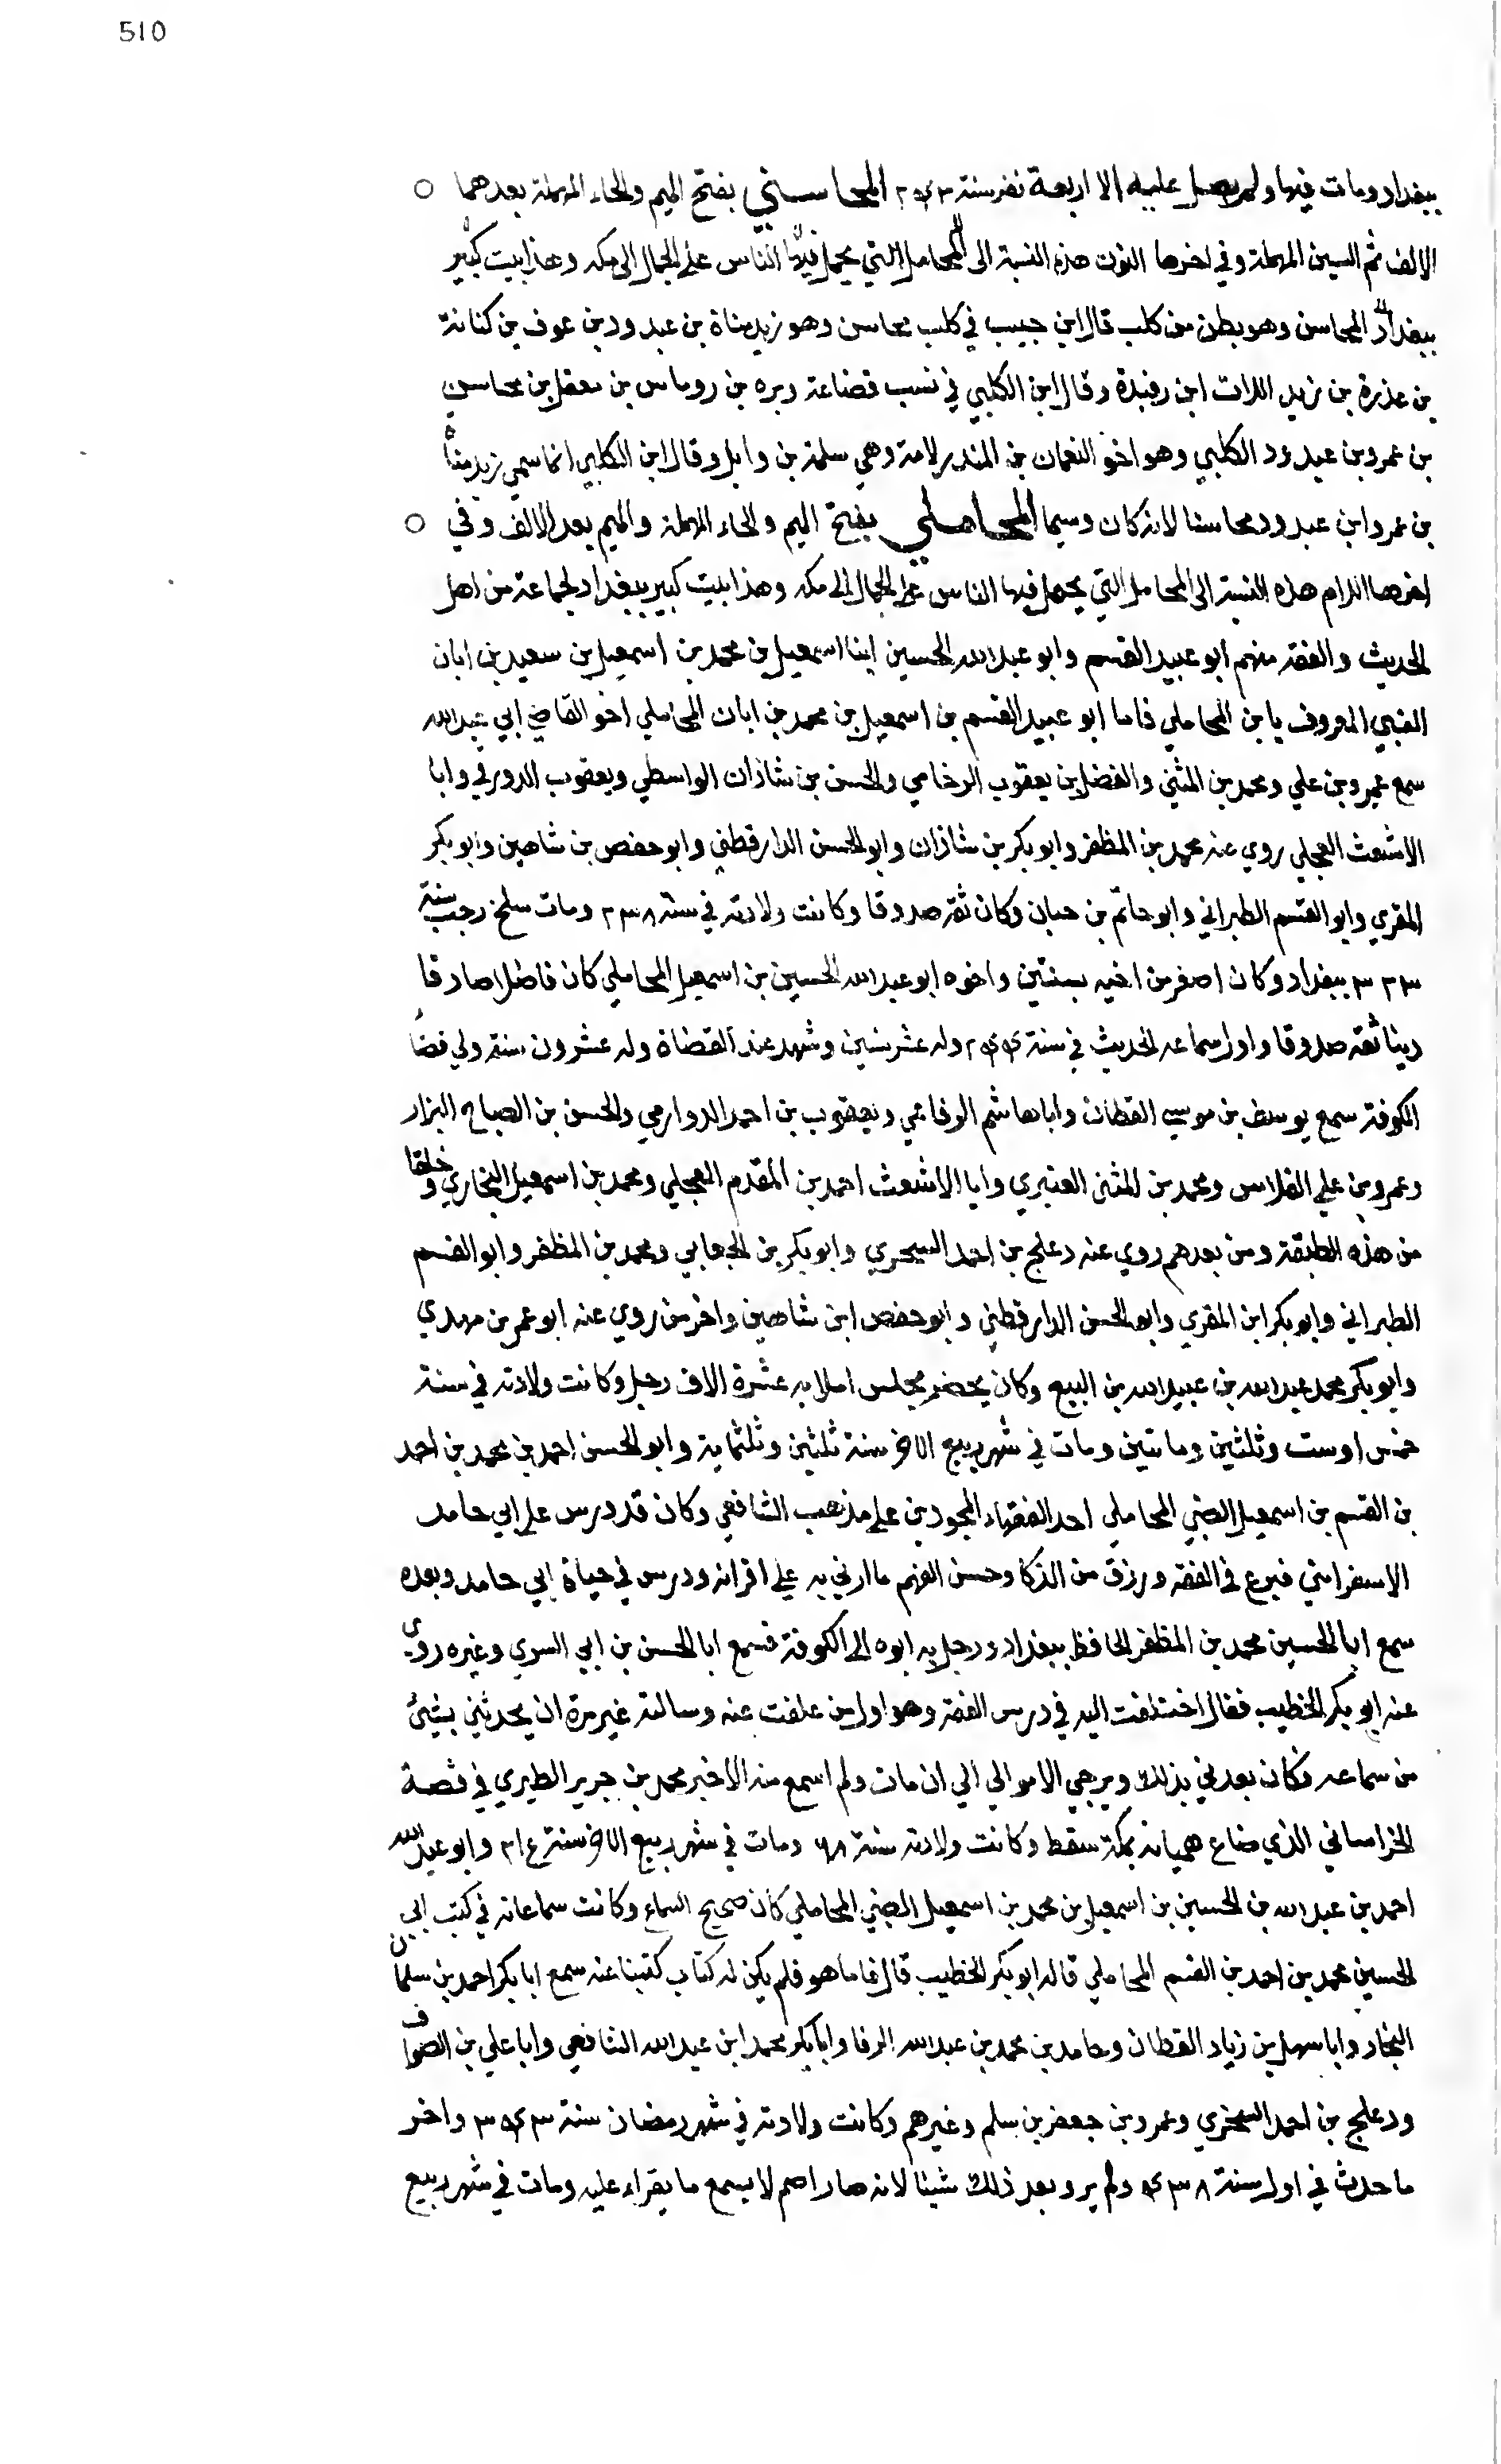 510
ببغداد ومات فيها ولم يصل عليه الا اربعة نفر سنة ٢٤٣ المحاسني بفتح الميم والحاء المهملة بعدهما
الالف ثم السين المهملة وفي اخرها النون هذه النسبة الى المحامل التي يحمل فيها الناس على الجمال الى مكه وهذا بيت كبير
ببغداد الى المحاسن وهو بطن من كلب قال ابن حبيب في كلب محاسن وهو زيد مناة بن عبد ود بن عوف بن كنانة
بن عذرة بن زيد اللات ابن رفيدة وقال ابن الكلبي في نسب قضاعة وبره بن رومانس بن معقل بن محاسن
بن عمرو بن عبد ود الكلبي وهو اخو النعمان بن المنذر لامه وهي سلمة بن وايل وقال ابن الكلبي انما سمي زيد مناة
بن عمرو ابن عبد ود محاسنا لانه كان وسيما المحاملي بفتح الميم والحاء المهملة والميم بعد الالف وفي
اخرها اللام هذه النسبة الى المحامل التي يحمل فيها الناس على الجمال الى مكه وهذا بيت كبير ببغداد لجماعة من اهل
الحديث والفقه منهم ابو عبيد القسم وابو عبد الله الحسين ابنا اسمعيل بن محمد بن اسمعيل بن سعيد بن ابان
الضبي المعروف بابن المحاملي فاما ابو عبيد القسم بن اسمعيل بن محمد بن ابان المحاملي اخو القاضي ابي عبد الله
سمع عمرو بن علي ومحمد بن المثنى والفضل بن يعقوب الرخامي والحسن بن شاذان الواسطي ويعقوب الدورقي وابا
الاشعث العجلي روي عنه محمد بن المظفر وابو بكر بن شاذان وابو الحسن الدارقطني وابو حفص بن شاهين وابو بكر
المقري وابو القسم الطبراني وابو حاتم بن حبان وكان ثقة صدوقا وكانت ولادته في سنة ٢٣٨ ومات سلخ رجب سنة
٣٢٣ ببغداد وكان اصغر من اخيه بسنتين واخوه ابو عبد الله الحسين بن اسمعيل المحاملي كان فاضلا صادقا
دينا ثقة صدوقا واول سماعه الحديث في سنة ٢٤٤ وله عشر سنين وشهد عند القضاة وله عشرون سنة ولي قضاء
الكوفة سمع يوسف بن موسى القطان وابا هاشم الرفاعي ويعقوب بن احمد الدوارمي والحسن بن الصباح البزار
وعمرو بن علي الفلاس ومحمد بن المثنى العنبري وابا الاشعث احمد بن المقدم العجلي ومحمد بن اسمعيل البخاري وخلقا
من هذه الطبقة ومن بعدهم روي عنه دعلج بن احمد السجزي وابو بكر بن الجعابي ومحمد بن المظفر وابو القسم
الطبراني وابو بكر ابن المقري وابو الحسن الدارقطني وابو حفص ابن شاهين واخر من روي عنه ابو عمر بن مهدي
وابو بكر محمد عبد الله بن عبيد الله بن البيع وكان يحضر مجلس املايه عشرة الاف رجل وكانت ولادته في سنة
خمس اوست وثلثين وماتين ومات في شهر ربيع الاخر سنة ثلثين وثلثماية وابو الحسن احمد بن محمد بن احمد
بن القسم بن اسمعيل الضبي المحاملي احد الفقهاء المجودين على مذهب الشافعي وكان قد درس على ابي حامد
الاسفرايني فبرع في الفقه ورزق من الذكا وحسن الفهم ما اربي به على اقرانه ودرس في حياة ابي حامد وبعده
سمع ابا الحسين محمد بن المظفر الحافظ ببغداد ورحل به ابوه الى الكوفة فسمع ابا الحسن بن ابي السري وغيره روي
عنه ابو بكر الخطيب فقال اختلفت اليه في درس الفقه وهو اول من علقت عنه وسالته غير مرة ان يحدثني بشئ
من سماعه فكان يعدني بذلك ويرجي الامر الي الي ان مات ولم اسمع منه الا خبر محمد بن جرير الطبري في قصة
الخراساني الذي ضاع هميانه بمكة سقط وكانت ولادته سنة ٦٨ ومات في شهر ربيع الاخر سنة ٤١٠ وابو عبد الله
احمد بن عبد الله بن الحسين بن اسمعيل بن محمد بن اسمعيل الضبي المحاملي كان صحيح السماع وكانت سماعاته في كتب ابي
الحسين محمد بن احمد بن القسم المحاملي قاله ابو بكر الخطيب قال فاما هو فلم يكن له كتاب كتبنا عنه سمع ابا بكر احمد بن سلمان
النجاد وابا سهل بن زياد القطان وحامد بن محمد بن عبد الله الرفا وابا بكر محمد ابن عبد الله الشافعي وابا علي بن الصواف
ودعلج بن احمد السجزي وعمرو بن جعفر بن سلم وغيرهم وكانت ولادته في شهر رمضان سنة ٣٤٣ واخر
ما حدث في اول سنة ٤٣٨ ولم يرو بعد ذلك شيئا لانه صار اصم لا يسمع ما يقراء عليه ومات في شهر ربيع